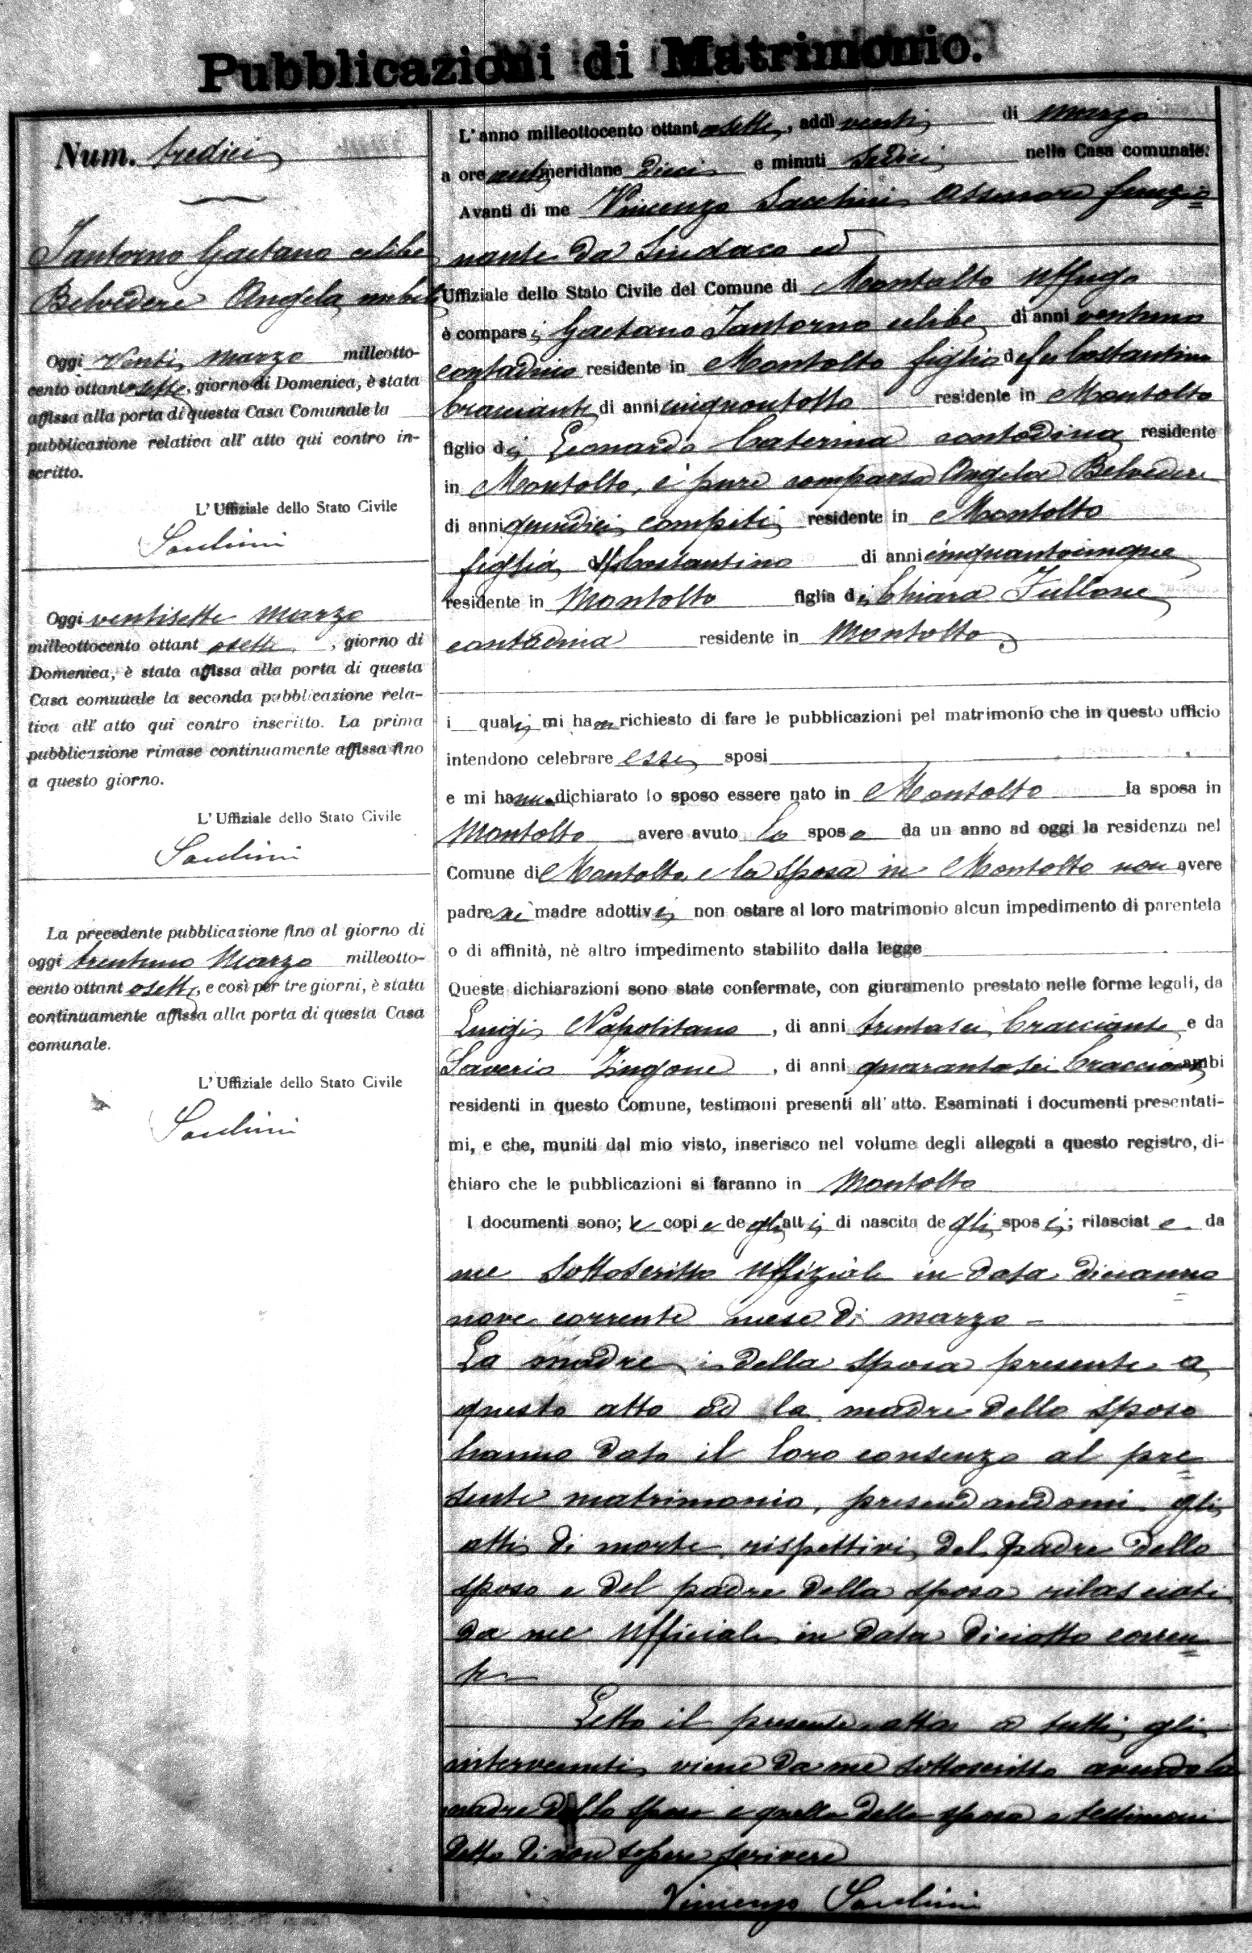 Pubblicazioni di Matrimonio.
Num. tredici
Iantorno Gaetano celibe
Belvedere Angela nubile
Oggi Venti Marzo milleotto-
cento ottantasette, giorno di Domenica, è stata
affissa alla porta di questa Casa Comunale la
pubblicazione relativa all' atto qui contro in-
scritto.
L' Uffiziale dello Stato Civile
Oggi ventisette Marzo
milleottocento ottant asette, giorno di
Domenica, è stata affissa alla porta di questa
Casa comunale la seconda pubblicazione rela-
tiva all' atto qui contro inscritto. La prima
pubblicazione rimase continuamente affissa fino
a questo giorno.
L' Uffiziale dello Stato Civile
La precedente pubblicazione fino al giorno di
oggi trentuno Marzo milleotto-
cento ottant asette, e così per tre giorni, è stata
continuamente affissa alla porta di questa Casa
comunale.
L' Uffiziale dello Stato Civile
L'anno milleottocento ottant asette, addì venti di Marzo
a ore antimeridiane dieci e minuti sedici nella Casa comunale.
Avanti di me Vincenzo assessore funzio=
nante da Sindaco ed
Uffiziale dello Stato Civile del Comune di Montalto Uffugo
è comparsi Gaetano Iantorno celibe di anni ventuno
contadino residente in Montalto figlio d fu Costantino
bracciante di anni cinquantotto residente in Montalto
figlio di Leonardo Caterina contadina residente
in Montalto, è pure comparsa Angela Belvedere
di anni quindici compiti residente in Montalto
figlia d fu Costantino di anni cinquantacinque
residente in Montalto figlia di Chiara Fullone
contadina residente in Montalto
i quali mi han richiesto di fare le pubblicazioni pel matrimonio che in questo ufficio
intendono celebrare essi sposi
e mi hanno dichiarato lo sposo essere nato in Montalto la sposa in
Montalto avere avuto lo sposo da un anno ad oggi la residenza nel
Comune di Montalto, e la sposa in Montalto non avere
padre nè madre adottivi non ostare al loro matrimonio alcun impedimento di parentela
o di affinità, nè altro impedimento stabilito dalla legge
Queste dichiarazioni sono state confermate, con giuramento prestato nelle forme legali, da
Luigi Napolitano, di anni trentasei, bracciante e da
Saverio Zingone, di anni quarantasei bracciante ambi
residenti in questo Comune, testimoni presenti all' atto. Esaminati i documenti presentati-
mi, e che, muniti dal mio visto, inserisco nel volume degli allegati a questo registro, di-
chiaro che le pubblicazioni si faranno in Montalto
I documenti sono; le copie degli atti di nascita degli sposi; rilasciate da
me sottoscritto Uffiziale in data dicianno
nove corrente mese di marzo -
La madre della sposa presente a
questo atto ed la madre dello sposo
hanno dato il loro consenzo al pre=
sente matrimonio, presendandomi gli
atti di morte rispettivi del padre dello
sposo e del padre della sposa rilasciati
da me Ufficiale in data diciotto corren=
te
Letto il presente atto a tutti gli
intervenuti viene da me sottoscritto avendo la
madre dello sposo e quella della sposa e testimoni
detto di non sapere scrivere
Vincenzo